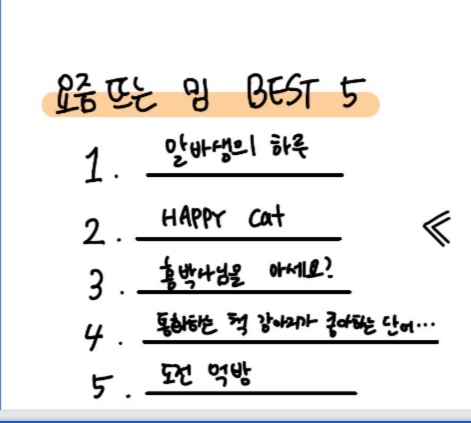 요즘 뜨는 밈 BEST 5
1. 알바생의 하루
2. HAPPY cat
3. 홍박사님을 아세요?
4. 통화하는 척 강아지가 좋아하는 단어...
5. 도전 먹방